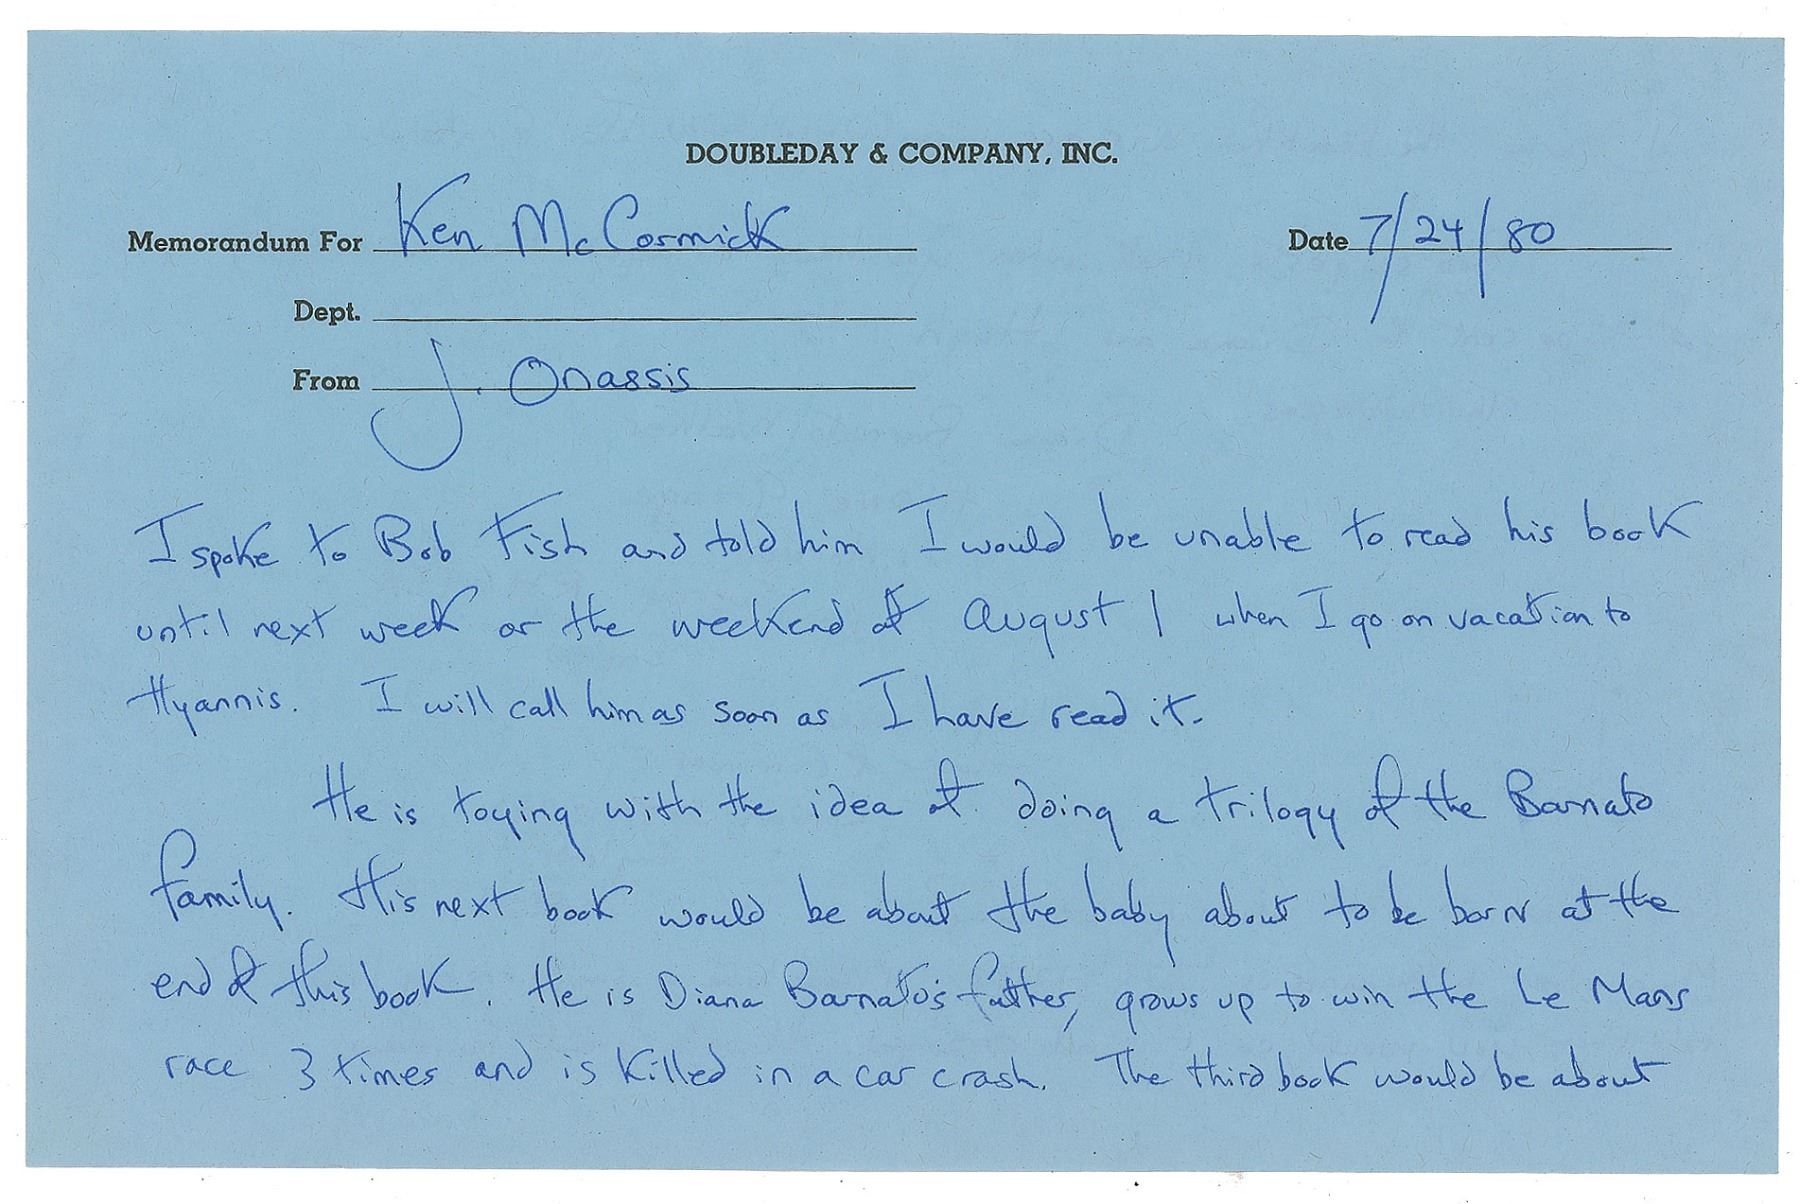 DOUBLEDAY & COMPANY, INC.
Memorandum For Ken McCormick Date 7/24/80
Dept.
From J. Onassis
I spoke to Bob Fish and told him I would be unable to read his book
until next week or the weekend of August 1 when I go on vacation to
Hyannis. I will call him as soon as I have read it.
He is toying with the idea of doing a trilogy of the Barnato
family. His next book would be about the baby about to be born at the
end of this book. He is Diana Barnato's father, grows up to win the Le Mans
race 3 times and is killed in a car crash. The third book would be about